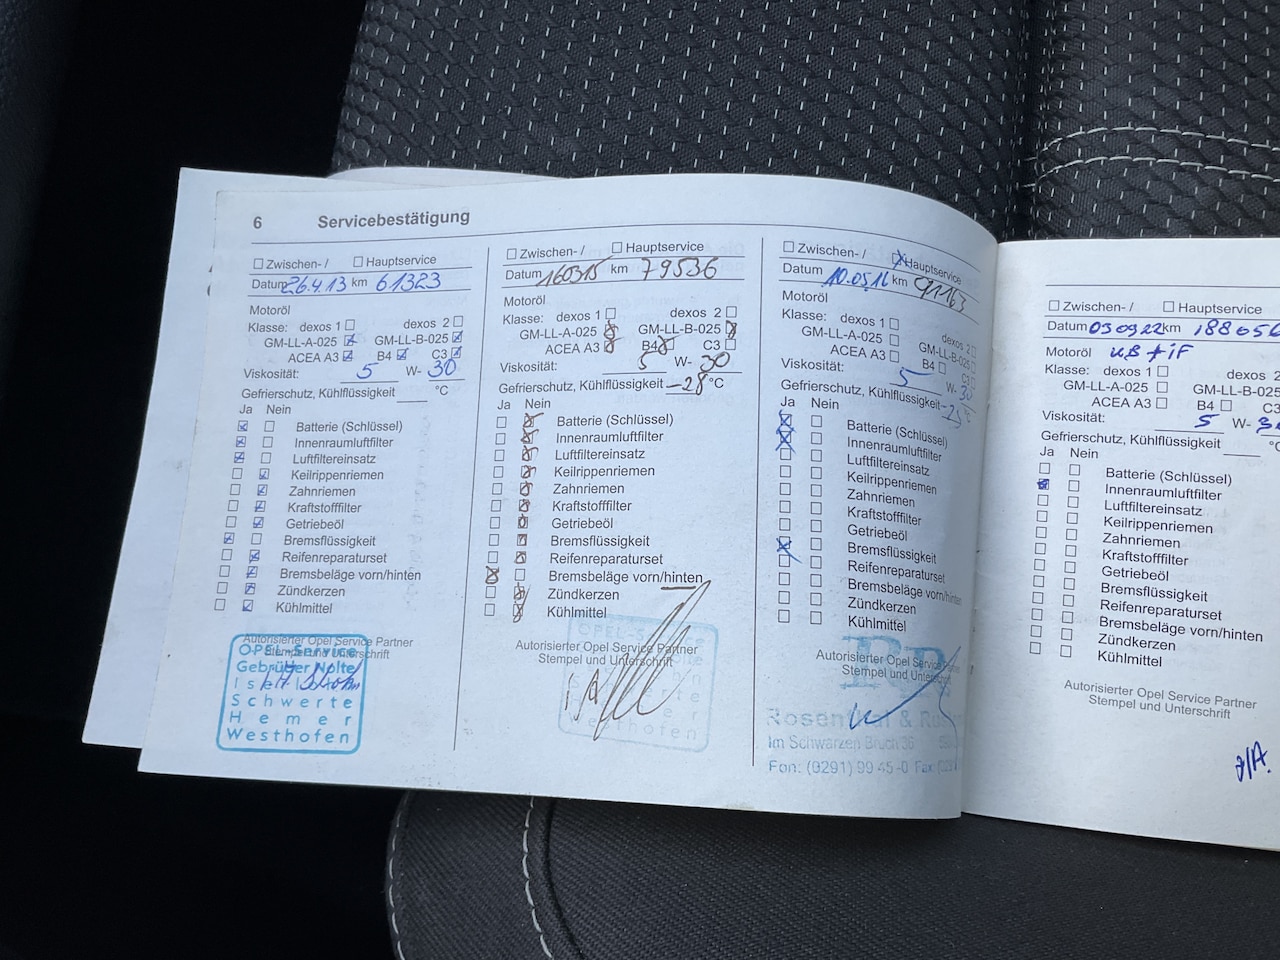 6 Servicebestätigung
Zwischen- / Hauptservice
Datum 26.4.13 km 61323
Motoröl
Klasse: dexos 1 dexos 2
GM-LL-A-025 GM-LL-B-025
ACEA A3 B4 C3
Viskosität: 5 W- 30
Gefrierschutz, Kühlflüssigkeit °C
Ja Nein
Batterie (Schlüssel)
Innenraumluftfilter
Luftfiltereinsatz
Keilrippenriemen
Zahnriemen
Kraftstofffilter
Getriebeöl
Bremsflüssigkeit
Reifenreparaturset
Bremsbeläge vorn/hinten
Zündkerzen
Kühlmittel
Autorisierter Opel Service Partner
Stempel und Unterschrift
OPEL-Service
Gebrüder Nolte
Iserlohn
Schwerte
Hemer
Westhofen
Zwischen- / Hauptservice
Datum 160315 km 79536
Motoröl
Klasse: dexos 1 dexos 2
GM-LL-A-025 GM-LL-B-025
ACEA A3 B4 C3
Viskosität: 5 W- 30
Gefrierschutz, Kühlflüssigkeit -28 °C
Ja Nein
Batterie (Schlüssel)
Innenraumluftfilter
Luftfiltereinsatz
Keilrippenriemen
Zahnriemen
Kraftstofffilter
Getriebeöl
Bremsflüssigkeit
Reifenreparaturset
Bremsbeläge vorn/hinten
Zündkerzen
Kühlmittel
Autorisierter Opel Service Partner
Stempel und Unterschrift
OPEL-Service
Schwerte
Hemer
Westhofen
Zwischen- / Hauptservice
Datum 10.05.16 km 91163
Motoröl
Klasse: dexos 1 dexos 2
GM-LL-A-025 GM-LL-B-025
ACEA A3 B4 C3
Viskosität: 5 W- 30
Gefrierschutz, Kühlflüssigkeit °C
Ja Nein
Batterie (Schlüssel)
Innenraumluftfilter
Luftfiltereinsatz
Keilrippenriemen
Zahnriemen
Kraftstofffilter
Getriebeöl
Bremsflüssigkeit
Reifenreparaturset
Bremsbeläge vorn/hinten
Zündkerzen
Kühlmittel
Autorisierter Opel Service Partner
Stempel und Unterschrift
Im Schwarzen Bruch 36
Fon: (0291) 99 45-0 Fax:
Zwischen- / Hauptservice
Datum 030922 km 188656
Motoröl
Klasse: dexos 1 dexos 2
GM-LL-A-025 GM-LL-B-025
ACEA A3 B4 C3
Viskosität: 5 W-
Gefrierschutz, Kühlflüssigkeit
Ja Nein
Batterie (Schlüssel)
Innenraumluftfilter
Luftfiltereinsatz
Keilrippenriemen
Zahnriemen
Kraftstofffilter
Getriebeöl
Bremsflüssigkeit
Reifenreparaturset
Bremsbeläge vorn/hinten
Zündkerzen
Kühlmittel
Autorisierter Opel Service Partner
Stempel und Unterschrift